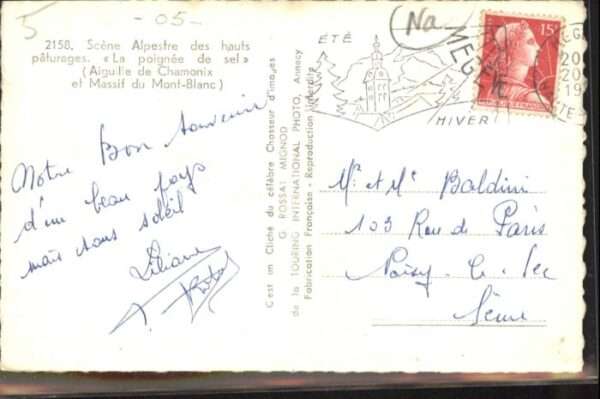 5 - 05 -
2158. Scène Alpestre des hauts
pâturages. «La poignée de sel»
(Aiguille de Chamonix
et Massif du Mont-Blanc)
Notre Bon souvenir
d'un beau pays
mais sans soleil
Liliane
C'est un Cliché du célèbre Chasseur d'images
G. ROSSAT MIGNOD
de la TOURING INTERNATIONAL PHOTO, Annecy
Fabrication Française - Reproduction Interdite
Na
ÉTÉ
MEGÈVE
HIVER
15F
20
20
19
Mr et Me Baldini
103 Rue de Paris
Noisy-le-Sec
Seine